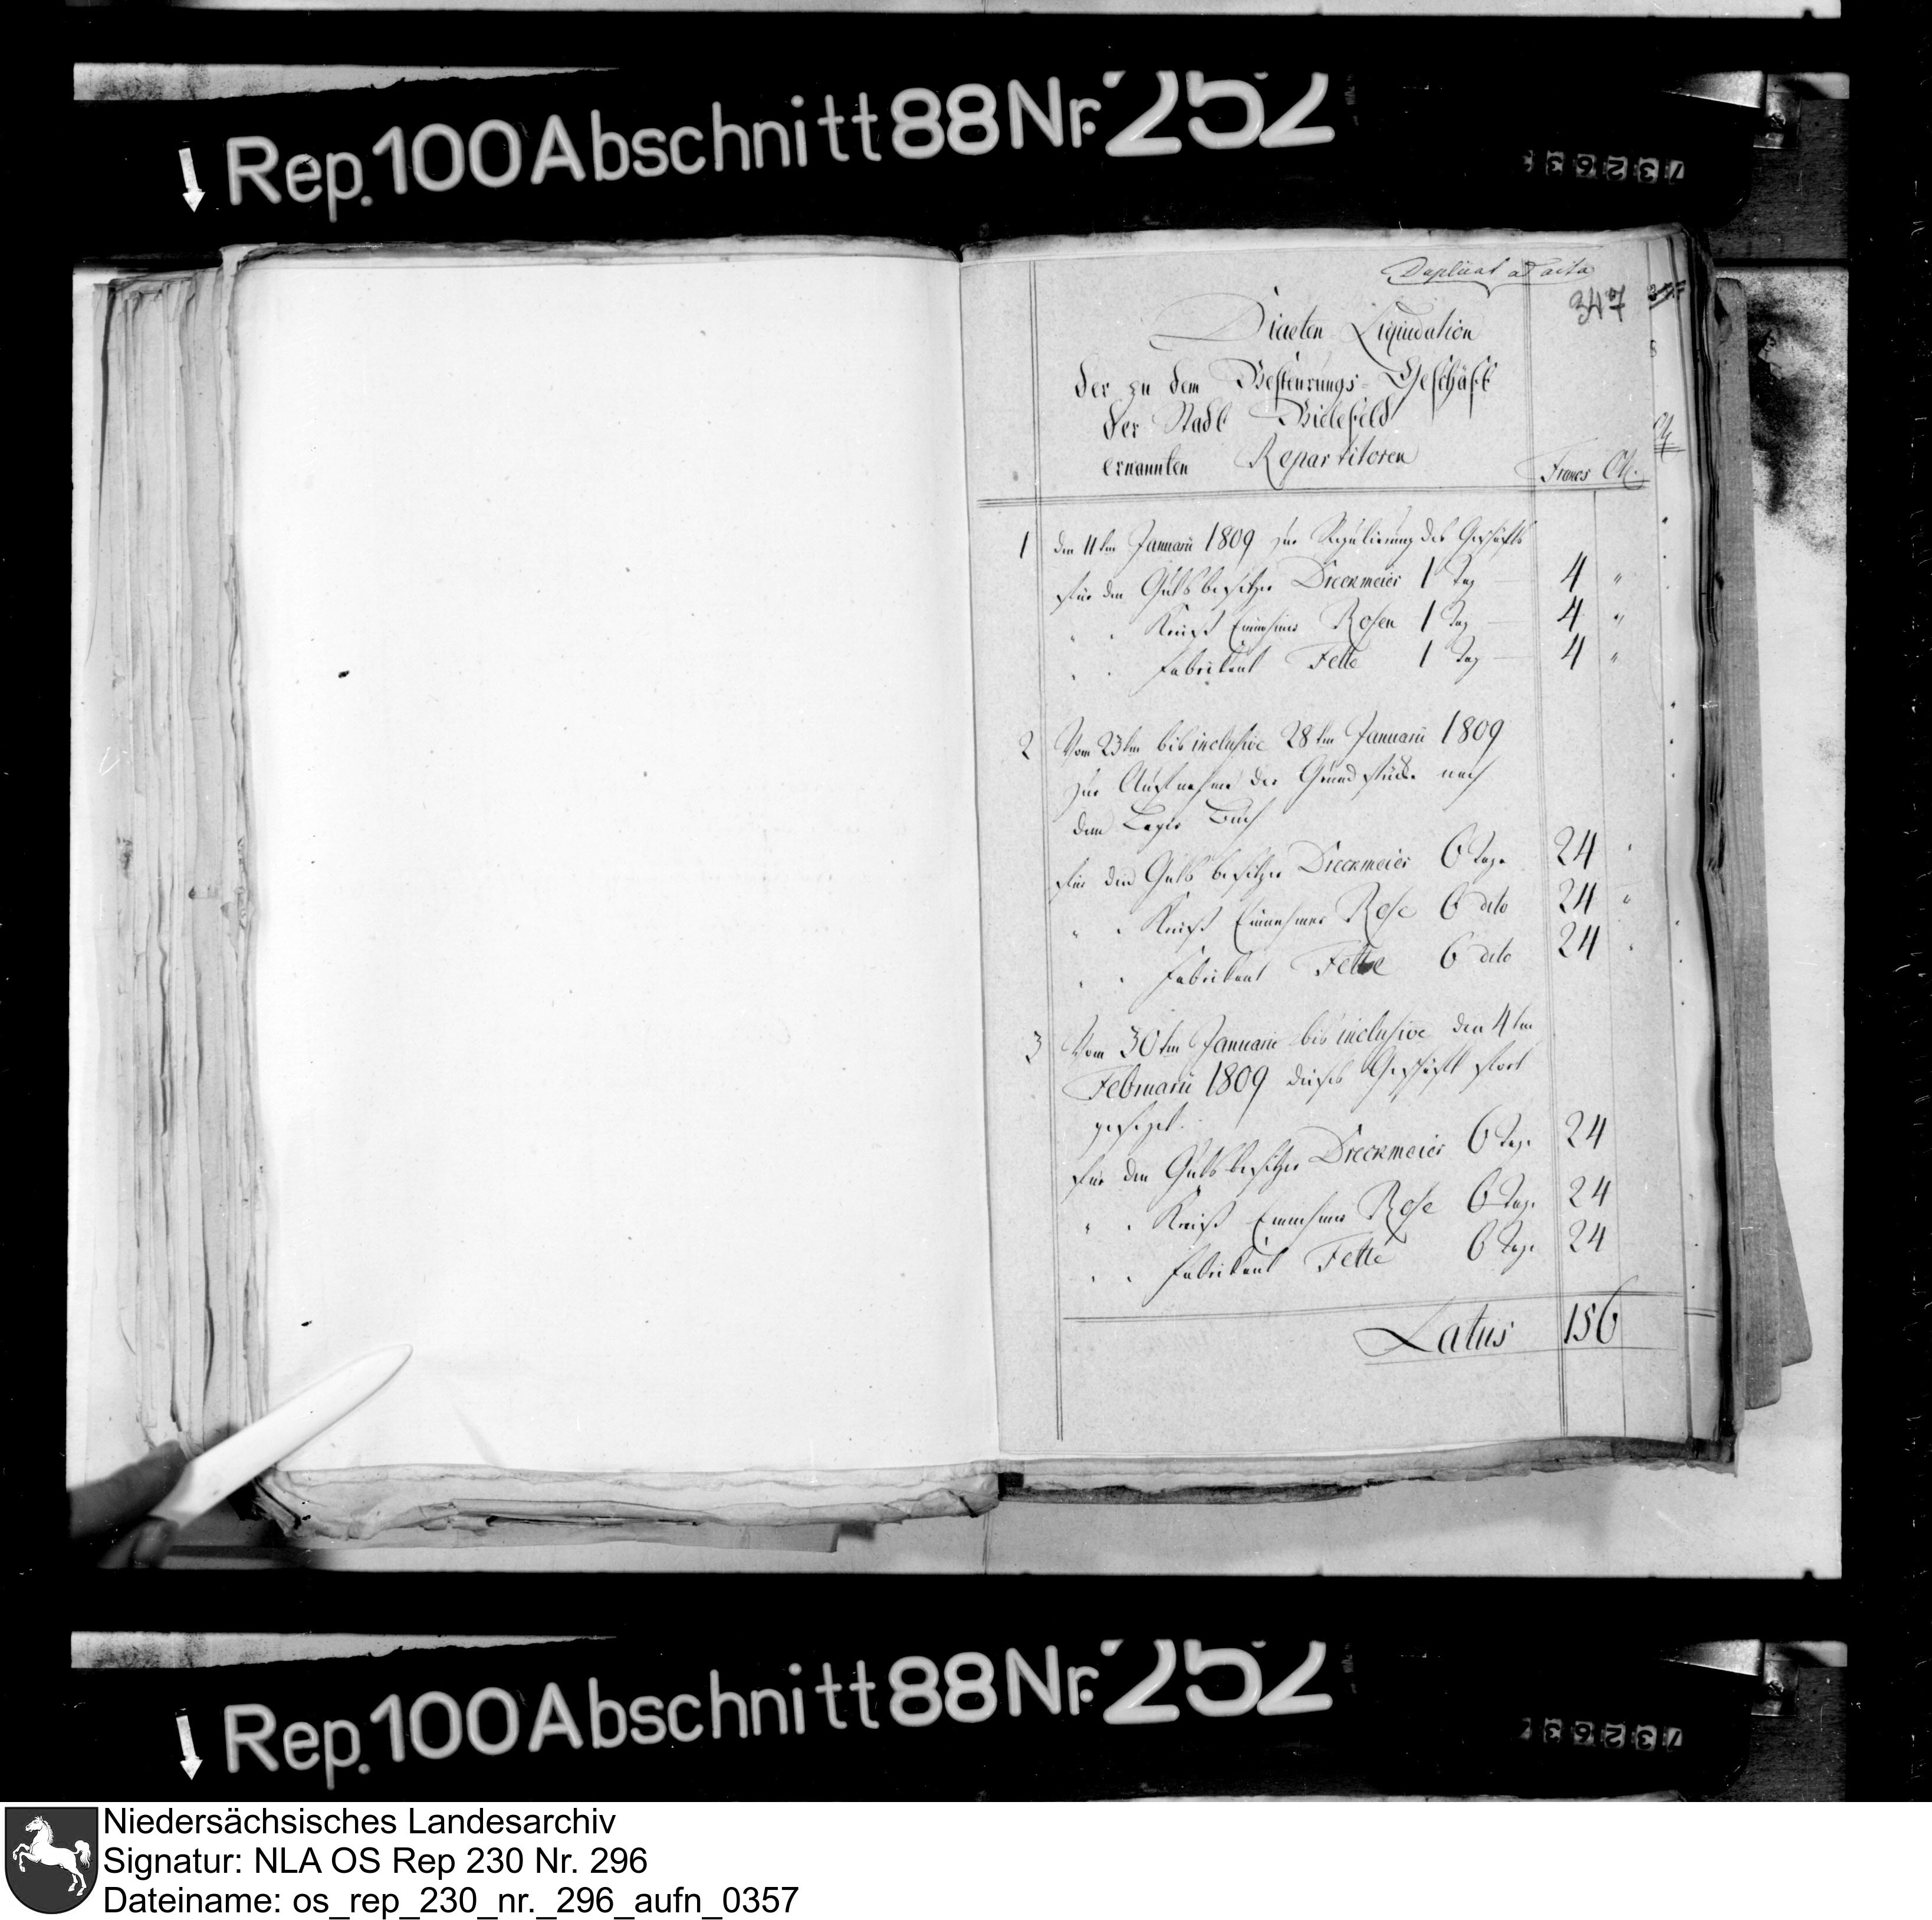 Rep. 100 Abschnitt 88 Nr. 252
732633
Duplicat ad acta
347
Diaeten Liquidation
der zu dem Besteurungs-Geschäft
der Stadt Bielefeld
ernannten Repartitoren
Francs Ct.
1 den 11ten Januarii 1809 zur Regulierung des Geschäfts
für den Gutsbesitzer Dreckmeier 1 Tag — 4 "
" " Kreiß Einnehmer Rosen 1 Tag — 4 "
" " Fabrikant Fette 1 Tag — 4 "
2 Vom 23ten bis inclusive 28ten Januarii 1809
zur Aufnahme der Grundstücke nach
dem Lager Buch
für den Gutsbesitzer Dreckmeier 6 Tage 24 "
" " Kreiß Einnehmer Rose 6 dito 24 "
" " Fabrikant Fette 6 dito 24 "
3 Vom 30ten Januarii bis inclusive den 4ten
Februarii 1809 dieses Geschäft fort
gesezt.
für den Gutsbesitzer Dreckmeier 6 Tage 24
" " Kreiß Einnehmer Rose 6 Tage 24
" " Fabrikant Fette 6 Tage 24
Latus 156
Rep. 100 Abschnitt 88 Nr. 252
Niedersächsisches Landesarchiv
Signatur: NLA OS Rep 230 Nr. 296
Dateiname: os_rep_230_nr._296_aufn_0357